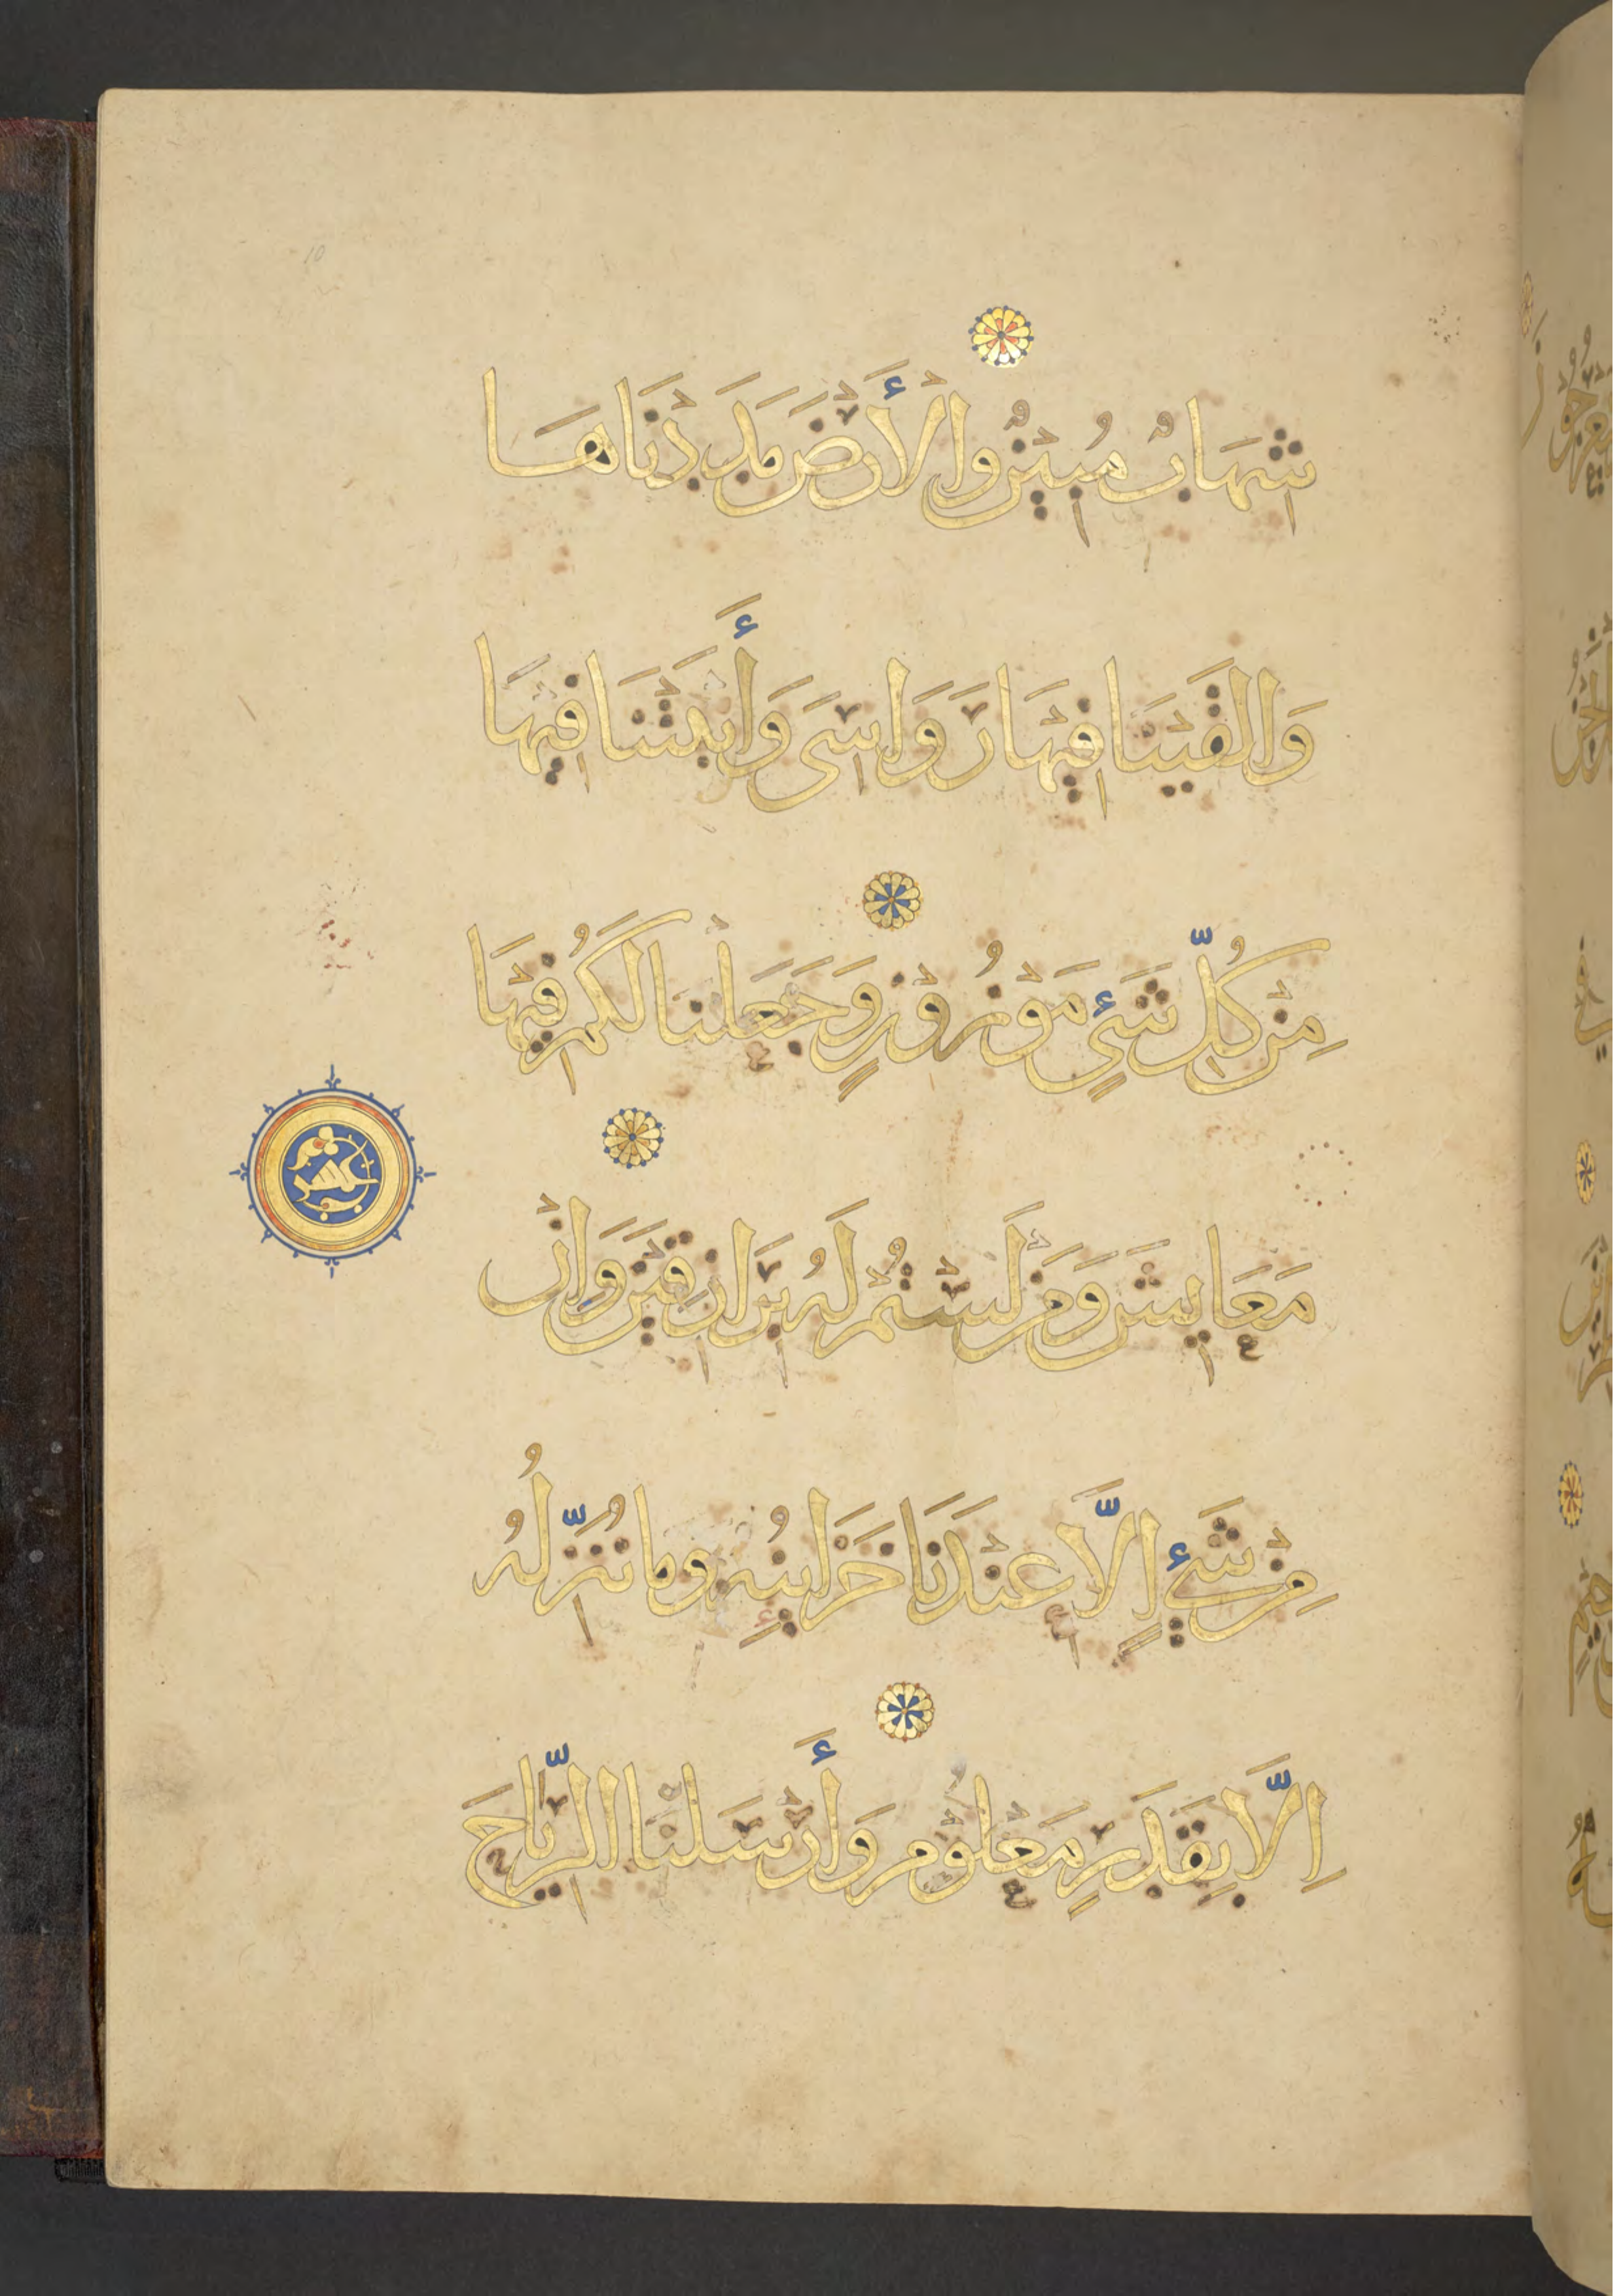 شِهَابٌ مُبِينٌ وَالْأَرْضَ مَدَدْنَاهَا
وَالْقَيْنَا فِيْهَا رَوَاسِىَ وَأَنْبَتْنَا فِيْهَا
مِنْ كُلِّ شَيْءٍ مَوْزُوْنٍ وَجَعَلْنَا لَكُمْ فِيْهَا
مَعَايِشَ وَمَنْ لَسْتُمْ لَهُ بِرَازِقِيْنَ وَاِنْ
مِنْ شَيْءٍ اِلَّا عِنْدَنَا خَزَايِنُهُ وَمَا نُنَزِّلُهُ
اِلَّا بِقَدَرٍ مَعْلُوْمٍ وَأَرْسَلْنَا الرِّيَاحَ
10